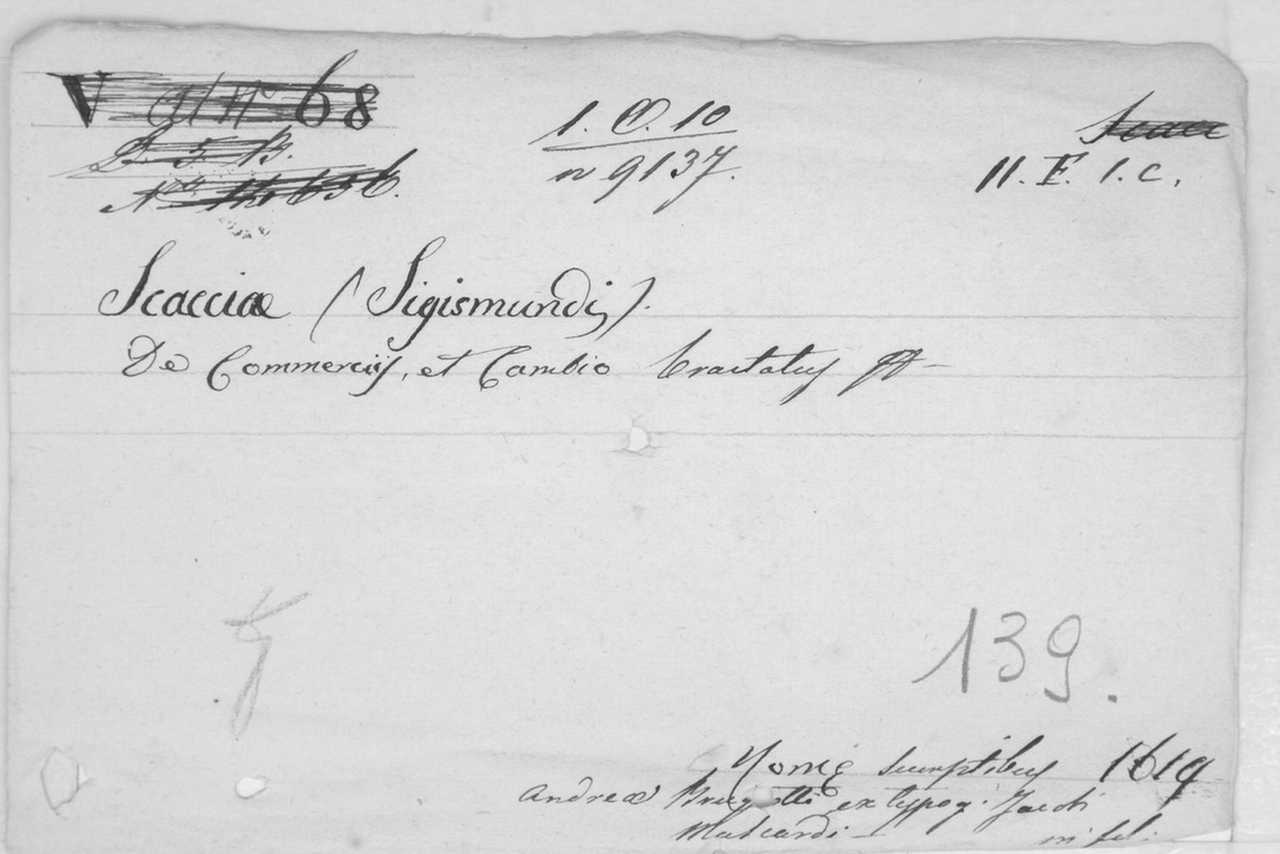 V 68
1. O. 10
n 9137.
Scacc
11. F. 1. c.
Scacciae (Sigismundi).
De Commerciis, et Cambio tractatus
139.
Romę sumptibus 1619
Andreae Brugiotti ex typog. Jacobi
Mascardi — in fol.